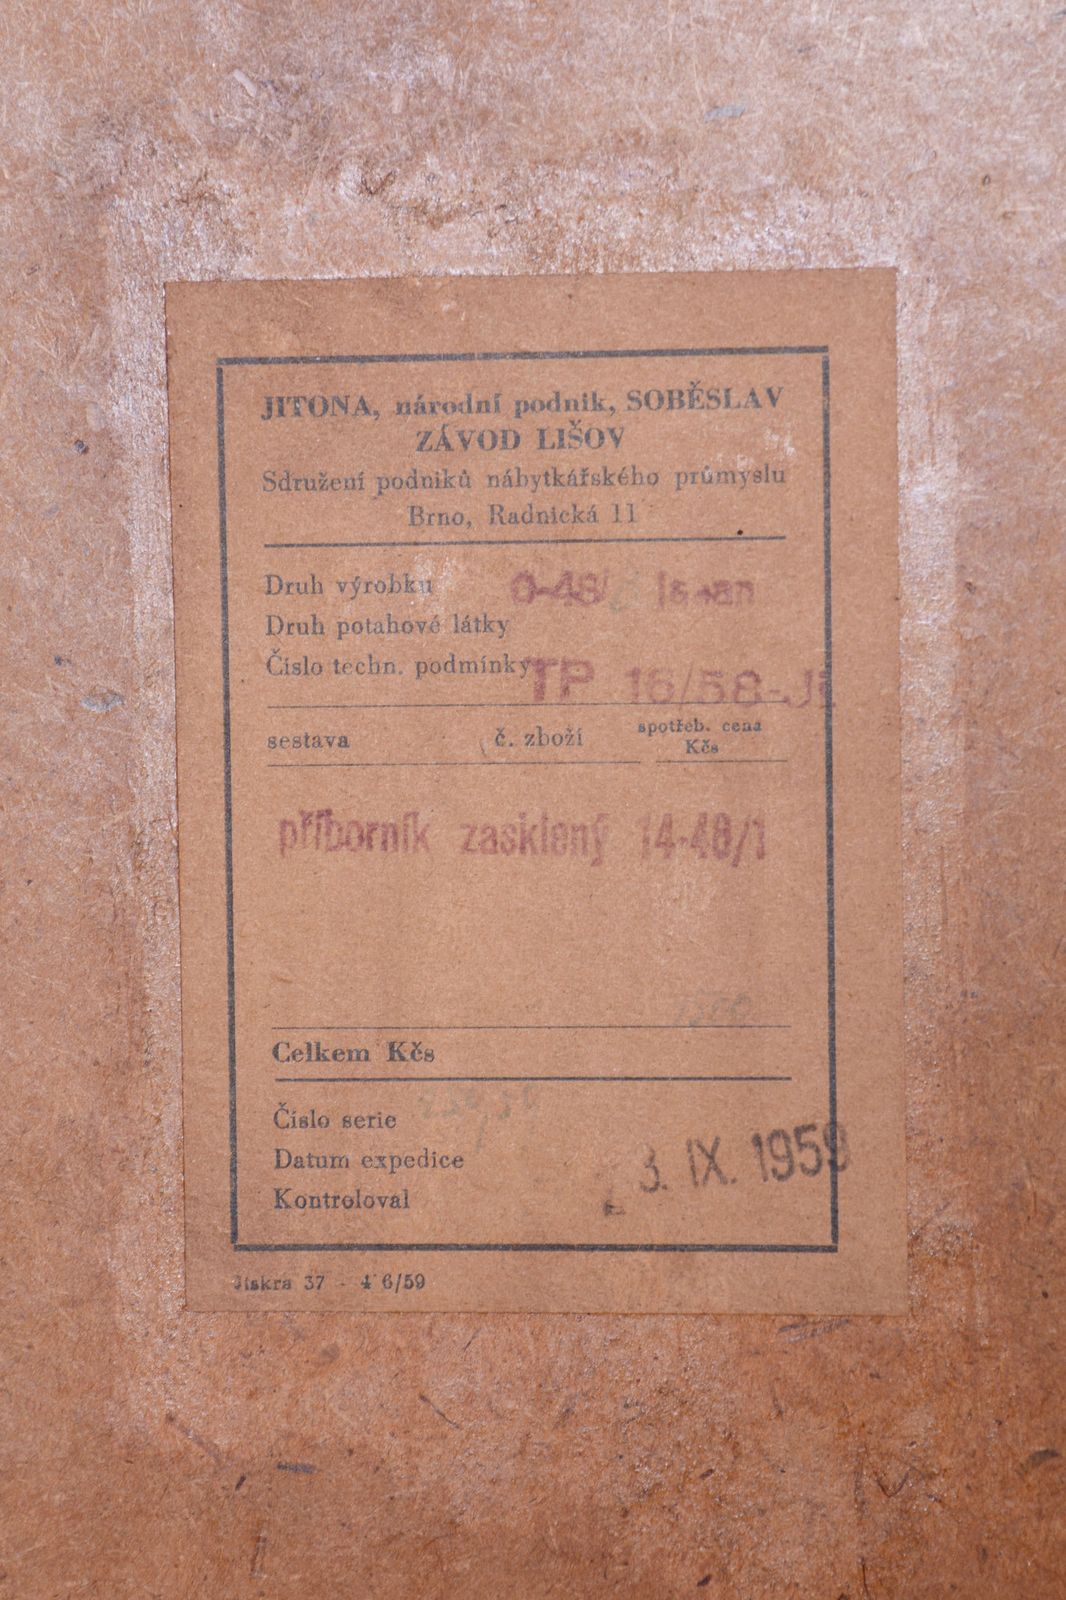 JITONA, národní podnik, SOBĚSLAV
ZÁVOD LIŠOV
Sdružení podniků nábytkářského průmyslu
Brno, Radnická 11
Druh výrobku 0-48/
Druh potahové látky
Číslo techn. podmínky TP 16/58-Ji
sestava č. zboží spotřeb. cena
Kčs
příborník zasklený 14-48/1
Celkem Kčs
Číslo serie
Datum expedice 3. IX. 1959
Kontroloval
Jiskra 37 - 4 6/59